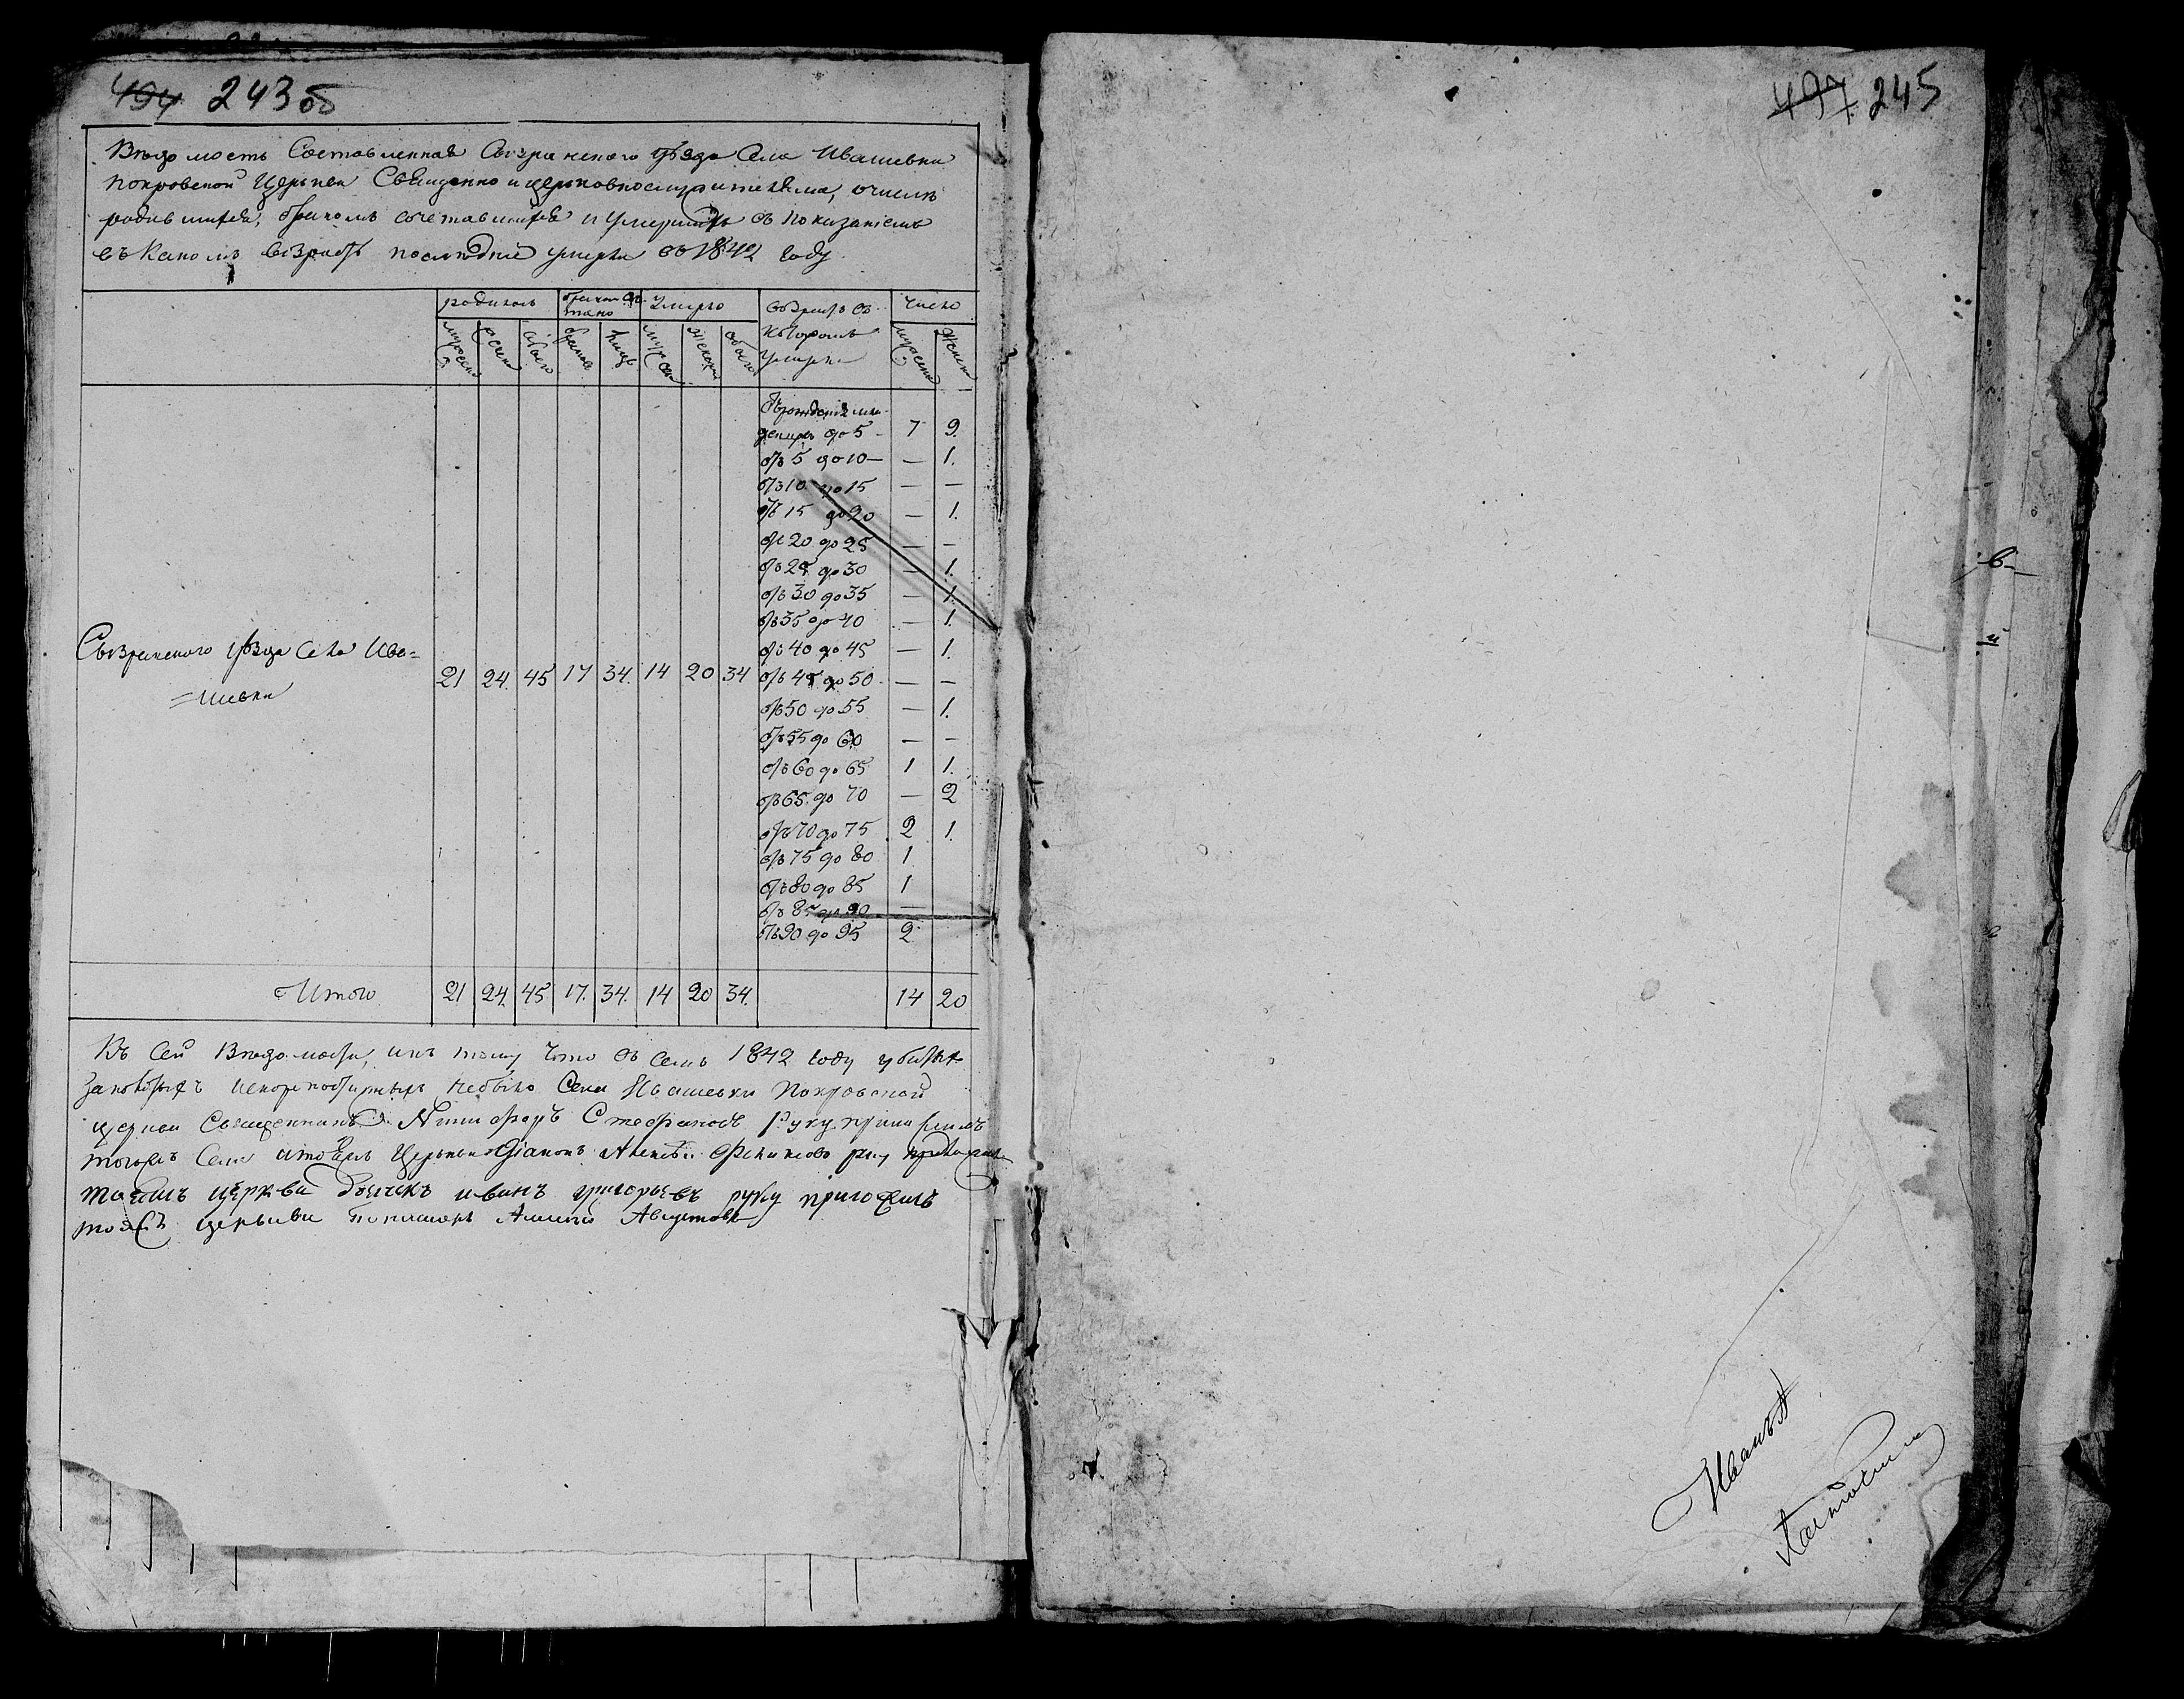 494 243об
Вѣдомость Составленная Сызранскаго уѣзда Села Ивашевки
Покровской Церкви Священно и церковнослужителями, о числѣ
родившихся, бракомъ сочетавшихся и умершихъ съ показаніемъ
въ какомъ возрастѣ послѣдніе умерли въ 1842 году
родилось бракомъ соче- Умерло возрастъ въ число
тано
мужеска женска обоего браковъ лицъ мужеска женска обоего которомъ умерли мужеска женска
Отъ рожденія мла-
денцевъ до 5 - 7 9.
отъ 5 до 10 — — 1.
отъ 10 до 15 — —
отъ 15 до 20 — 1.
отъ 20 до 25 — —
отъ 25 до 30 — 1.
отъ 30 до 35 — 1.
отъ 35 до 40 — 1.
отъ 40 до 45 — 1.
Сызранскаго уѣзда Села Ива=
=шевки 21 24. 45 17 34. 14 20 34 отъ 45 до 50 — —
отъ 50 до 55 — 1.
отъ 55 до 60 — —
отъ 60 до 65 1 1.
отъ 65 до 70 — 2
отъ 70 до 75 2 1.
отъ 75 до 80 1
отъ 80 до 85 1
отъ 85 до 90 —
отъ 90 до 95 2
Итого 21 24. 45 17. 34. 14 20 34. 14 20
Къ Сей Вѣдомости, и къ тому что въ семъ 1842 году
небыло Села Ивашевки Покровской
церкви Священникъ Никифоръ Стефановъ руку приложилъ
тогожъ Села и тоежъ Церкви Діаконъ Алексѣй руку приложилъ
тоежъ церкви дьячекъ иванъ григорьевъ руку приложилъ
тоежъ церькви пономарь Августовъ
497. 245
Иванъ